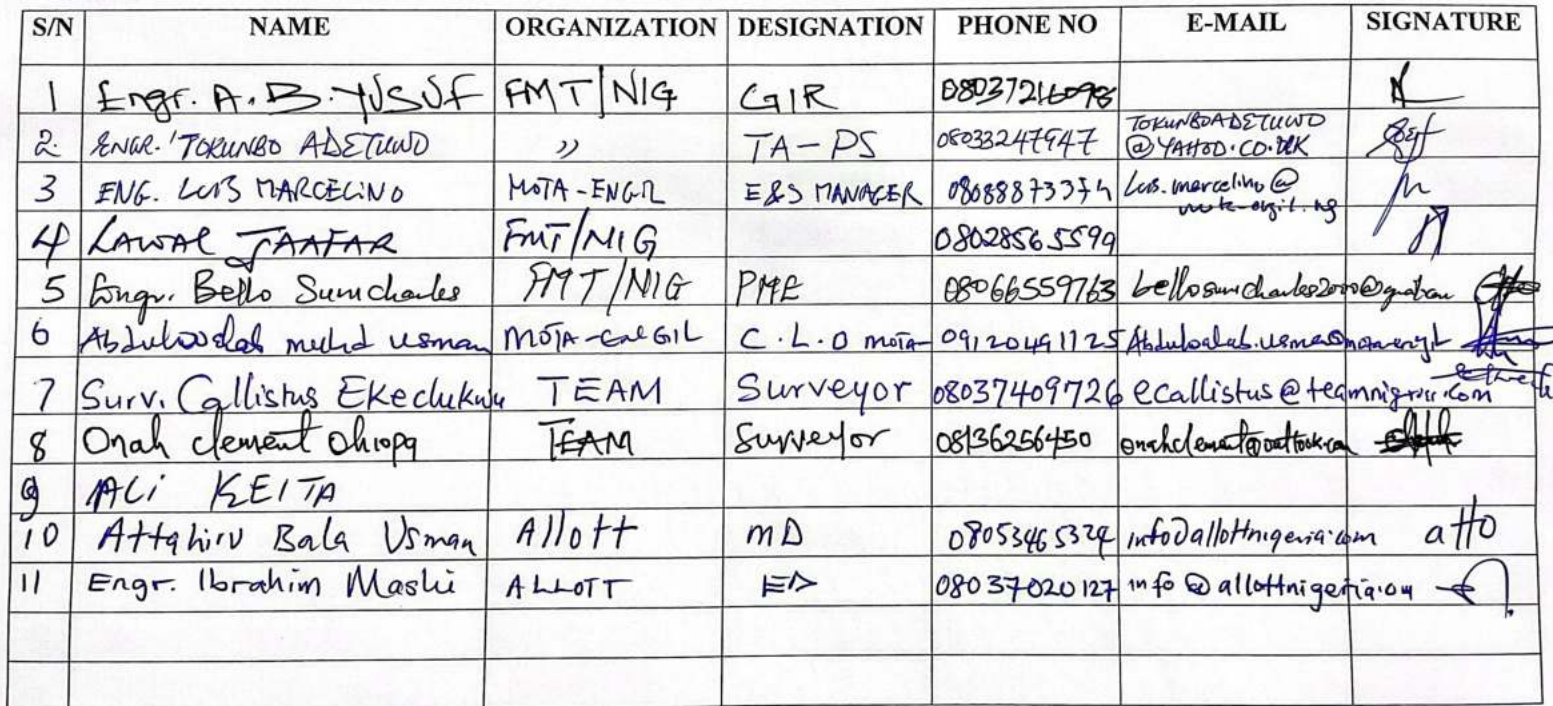 S/N NAME ORGANIZATION DESIGNATION PHONE NO E-MAIL SIGNATURE
1 Engr. A. B. YUSUF FMT/NIG GIR
2. ENGR. TOKUNBO ADETUWO ,, TA-PS 08033247947 TOKUNBOADETUWO
@YAHOO.CO.UK
3 ENG. LUIS MARCELINO MOTA-ENGIL E&S MANAGER 08088873374 Luis.marcelino@
4 LAWAL JAAFAR FMT/NIG 08028565599
5 Engr. Bello Sumcharles FMT/NIG PME 08066559763
6 usman MOTA-EnGGIL C.L.O mota- 09120491125
7 Surv. Callistus Ekechukwu TEAM Surveyor 08037409726 ecallistus@teamnigeria.com
8 Onah clement Ohiopa TEAM Surveyor 08136256450 onahclement@outlook.com
9 ALi KEITA
10 Attahiru Bala Usman Allott mD 08053465324 info@allottnigeria.com atto
11 Engr. Ibrahim Mashi ALLOTT ED 08037020127 info@allottnigeria.com